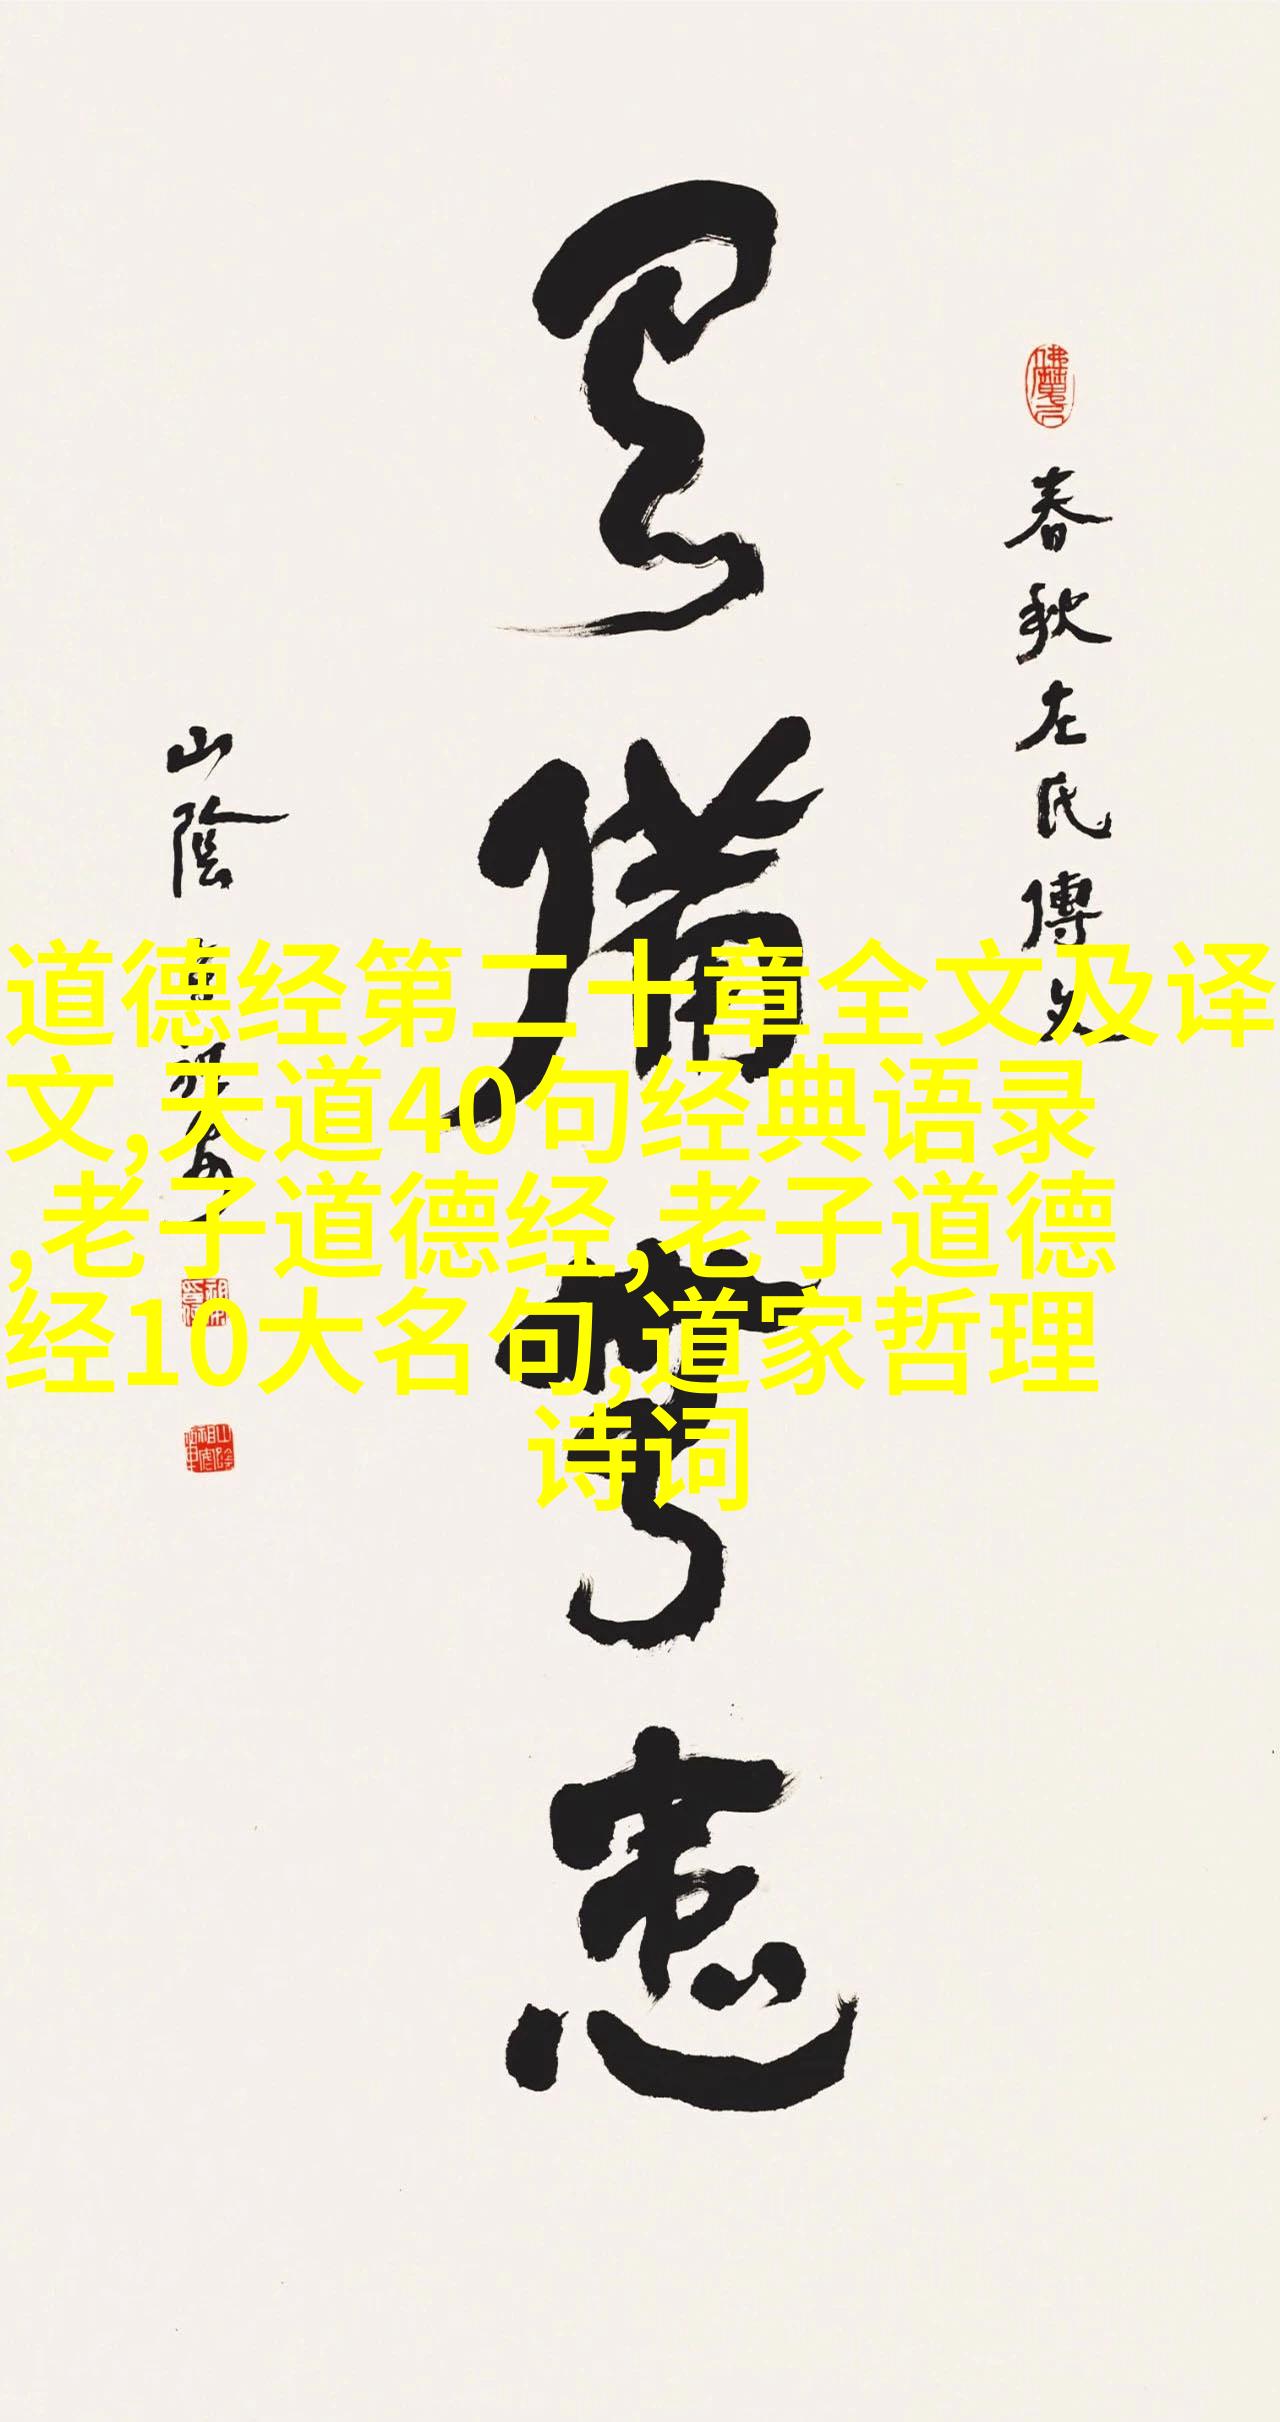 春秋左氏傳
備
患
山陰
道德经第二十章全文及译
文,天道40句经典语录
,老子道德经,老子道德
经10大名句,道家哲理
诗词